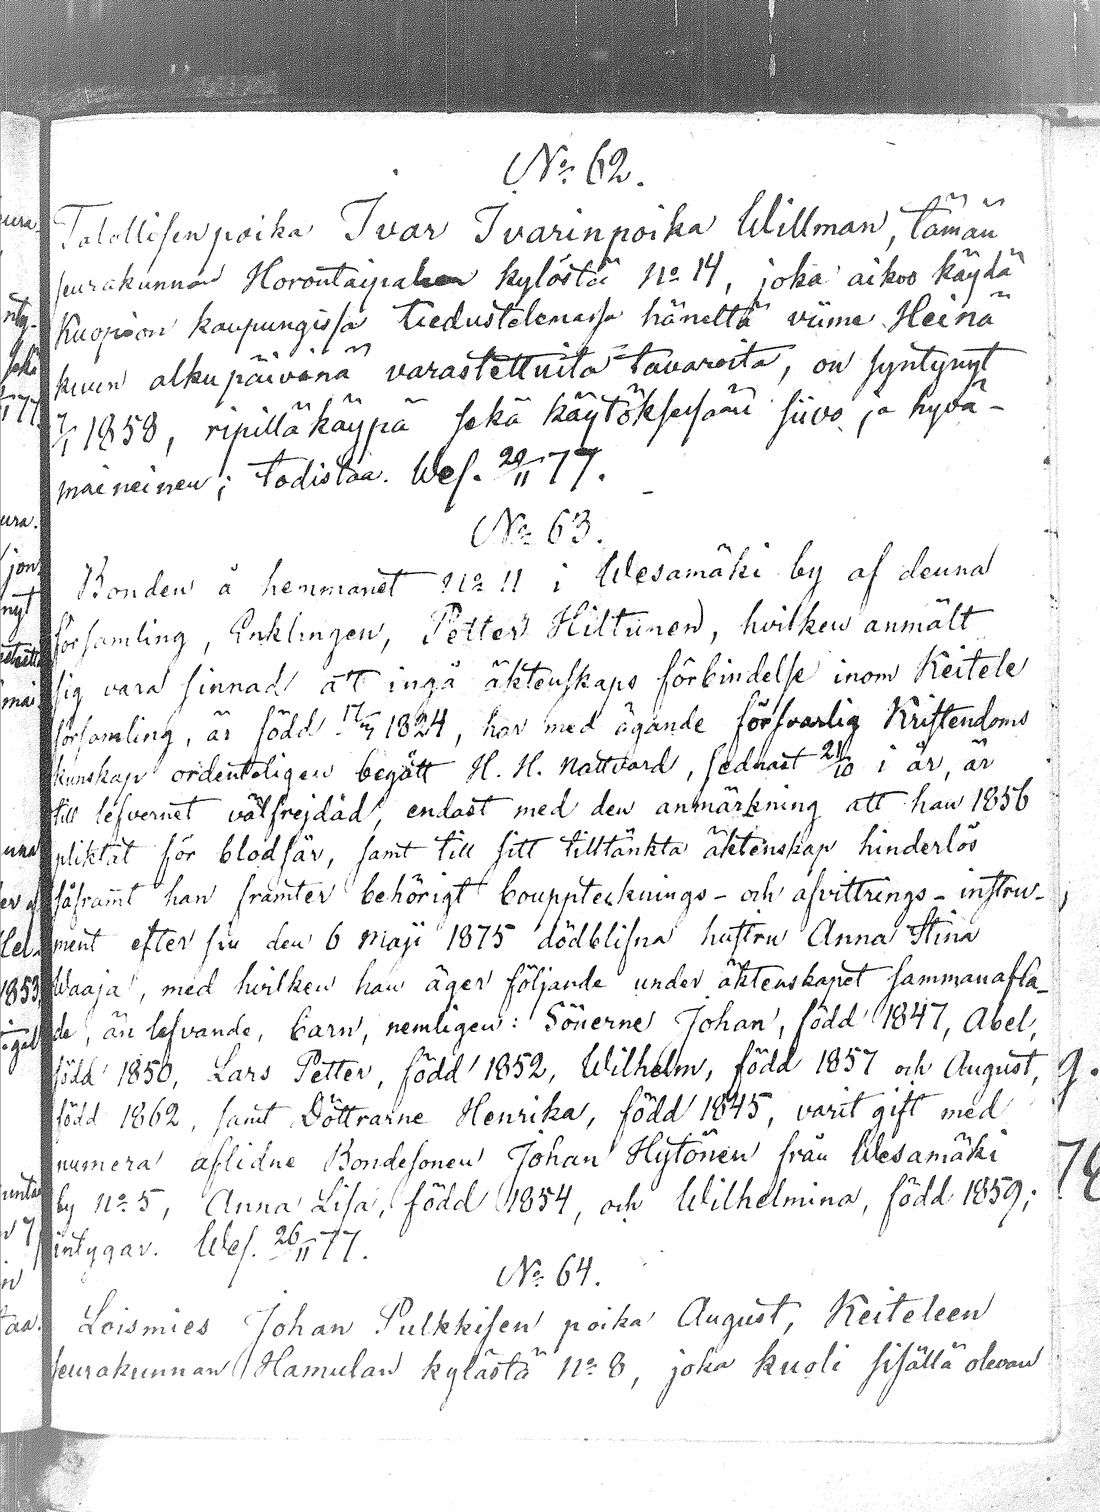 No 62.
Talollisen poika Ivar Ivarinpoika Willman, tämän
seurakunnan Horontaipaleen kylästä No 14, joka aikoo käydä
Kuopion kaupungissa tiedustelemassa häneltä viime Heinä
kuun alkupäivinä varastettuita tavaroita, on syntynyt
7/1 1858, ripilläkäypä sekä käytöksessään siivo ja hyvä-
maineinen; todistaa. Wes. 20/11 77.
No 63.
Bonden å hemmanet No 11 i Wesamäki by af denna
församling, Enklingen, Petter Hiltunen, hvilken anmält
sig vara sinnad att ingå äktenskaps förbindelse inom Keitele
församling, är född 17/5 1824, har med ägande försvarlig Kristendoms
kunskap ordenteligen begått H. H. Nattvard, sednast 21/10 i år, är
till lefvernet välfrejdad, endast med den anmärkning att han 1856
pliktat för blodsår, samt till sitt tilltänkta äktenskap hinderlös
såframt han framter behörigt bouppteknings- och afvittrings-instru-
ment efter sin den 6 Maji 1875 dödblifna hustru Anna Stina
Waaja, med hvilken han äger följande under äktenskapet sammanafla-
de, än lefvande, barn, nemligen: Sönerne Johan, född 1847, Abel,
född 1850, Lars Petter, född 1852, Wilhelm, född 1857 och August,
född 1862, samt Döttrarne Henrika, född 1845, varit gift med
numera aflidne Bondesonen Johan Hytönen från Wesamäki
by No 5, Anna Lisa, född 1854, och Wilhelmina, född 1859;
intygar. Wes. 26/11 77.
No 64.
Loismies Johan Pulkkisen poika August, Keiteleen
seurakunnan Hamulan kylästä No 8, joka kuoli sisällä olevan